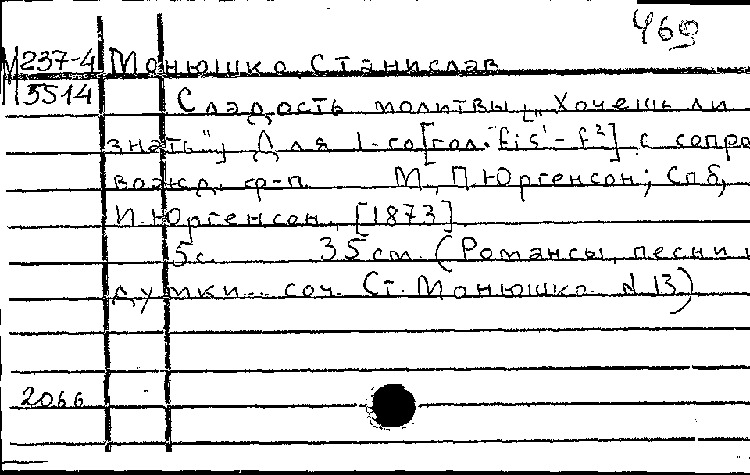 469
М 237-4 Монюшко, Станислав
5514
Сладость молитвы („Хочешь ли
знать"). Для 1-го [гол. fis¹- f²] с сопро
вожд. ф-п. М., П. Юргенсон; Спб,
И. Юргенсон, [1873]
5 с. 35 см. (Романсы, песни и
думки... соч. Ст. Монюшко. № 13)
2066